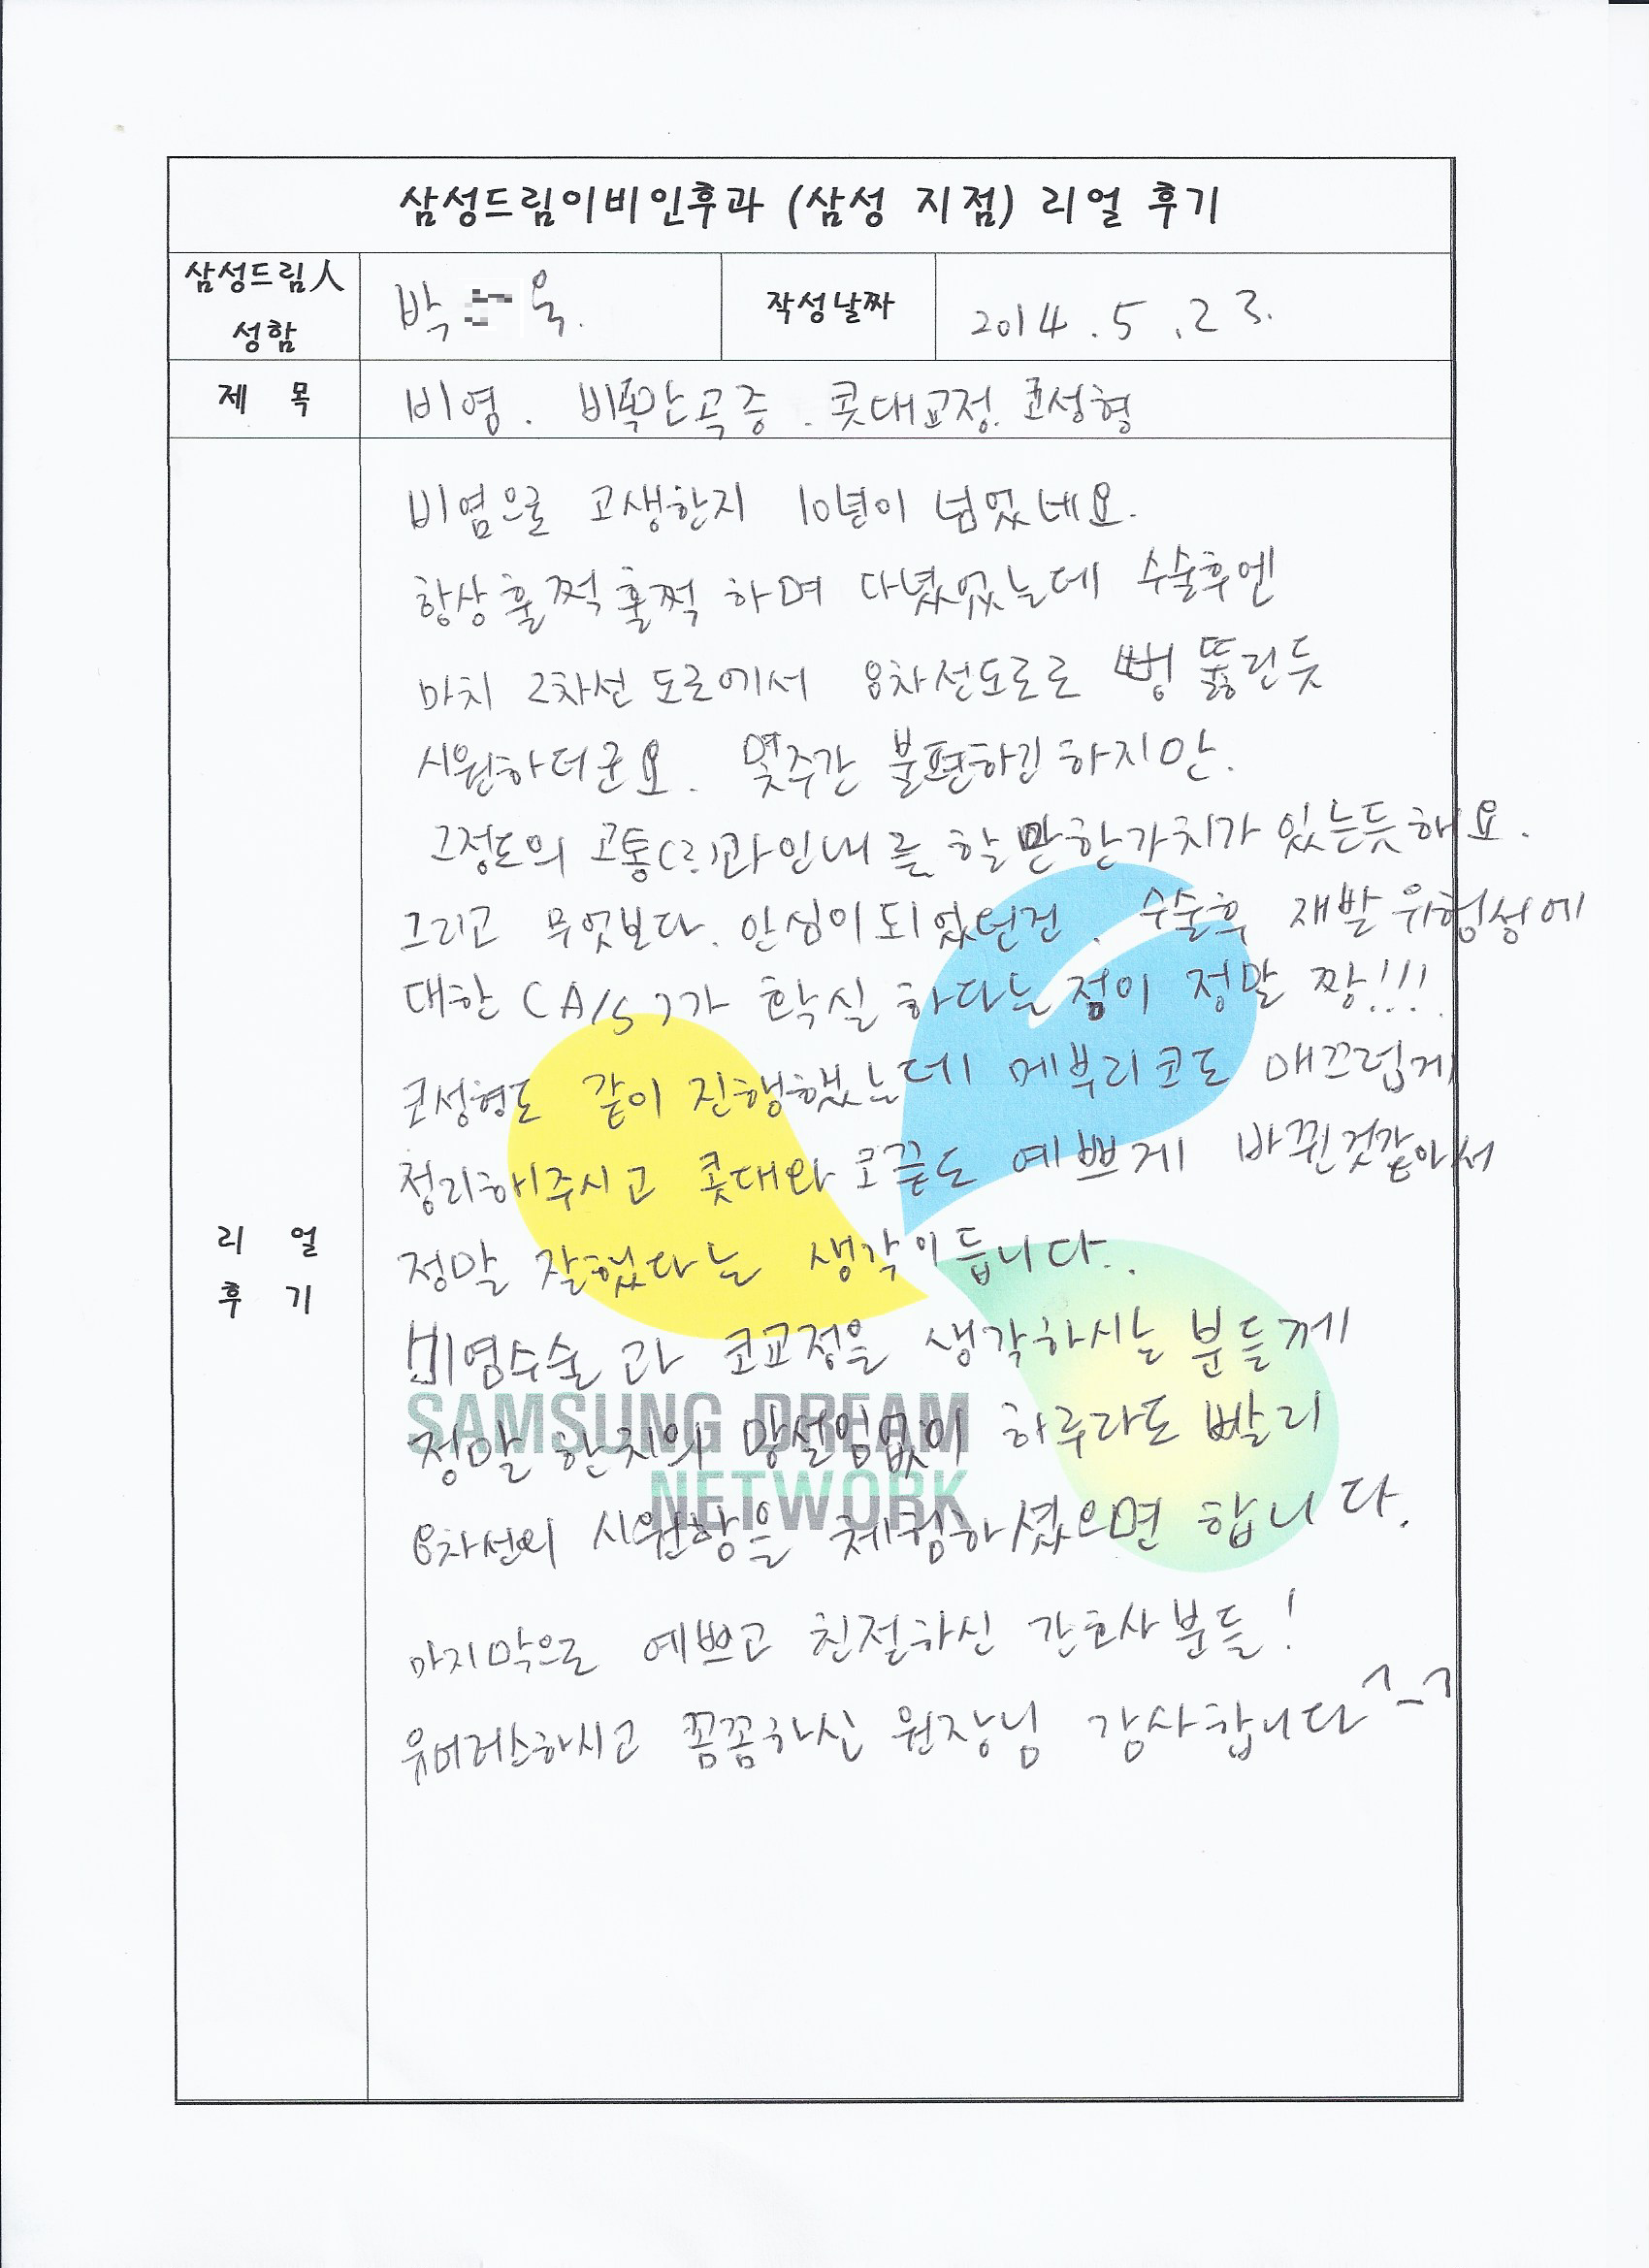 삼성드림이비인후과 (삼성 지점) 리얼 후기
삼성드림人
성함
박 욱.
작성날짜
2014. 5. 23.
제 목
비염. 비중만곡증. 콧대교정. 코성형
비염으로 고생한지 10년이 넘었네요.
항상 훌쩍훌쩍 하며 다녔었는데 수술후엔
마치 2차선 도로에서 8차선도로로 뻥 뚫린듯
시원하더군요. 몇주간 불편하긴하지만.
그정도의 고통(?)과인내를 할만한가치가 있는듯해요.
그리고 무엇보다. 안심이되었던건. 수술후 재발위험성에
대한 (A/S)가 확실하다는 점이 정말 짱!!!
코성형도 같이 진행했는데 메부리코도 매끄럽게
정리해주시고 콧대와 코끝도 예쁘게 바뀐것같아서
정말 잘했다는 생각이듭니다..
비염수술과 코교정을 생각하시는 분들께
정말 한치의 망설임없이 하루라도 빨리
8차선의 시원함을 체험하셨으면 합니다.
마지막으로 예쁘고 친절하신 간호사분들!
유머러스하시고 꼼꼼하신 원장님 감사합니다^_^
리 얼
후 기
SAMSUNG DREAM
NETWORK